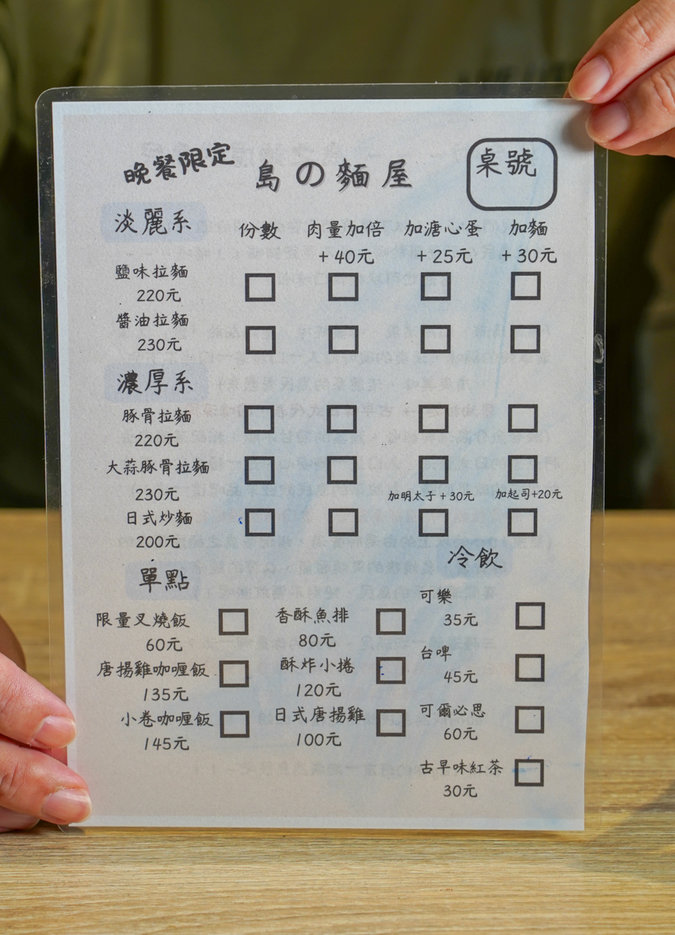 晚餐限定 島の麵屋 桌號
淡麗系 份數 肉量加倍 加溏心蛋 加麵
+40元 +25元 +30元
鹽味拉麵
220元
醬油拉麵
230元
濃厚系
豚骨拉麵
220元
大蒜豚骨拉麵
230元 加明太子+30元 加起司+20元
日式炒麵
200元
單點
限量叉燒飯
60元
唐揚雞咖喱飯
135元
小卷咖喱飯
145元
香酥魚排
80元
酥炸小捲
120元
日式唐揚雞
100元
冷飲
可樂
35元
台啤
45元
可爾必思
60元
古早味紅茶
30元